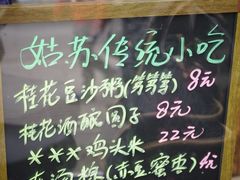 姑苏传统小吃
桂花豆沙粥(等等等) 8元
桂花酒酿园子 8元
***鸡头米 22元
汤粽(赤豆蜜枣)